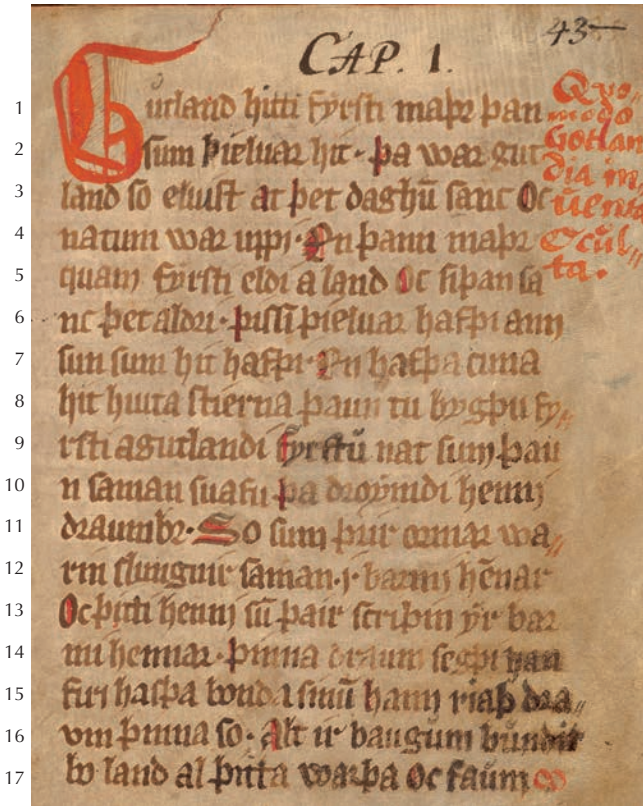 43
CAP. 1.
1 Gutland hitti fyrsti maþr þan
2 sum þieluar hit· þa war gut
3 land so eluist at þet daghū sanc Oc
4 natum war uppi· En þann maþr
5 quam fyrsti eldi a land Oc siþan sa
6 nc þet aldri· þissi þieluar hafþi ann
7 sun sum hit hafþi· En hafþa cuna
8 hit huita stierna þaun tu bygþu fy
9 rsti agutlandi fyrstū nat sum þau
10 n saman suafu þa droymdi hennj
11 draumbr· So sum þrir ormar wa
12 rin slungnir saman· j· barmj hēnar
13 Oc þitti hennj sū þair scriþin yr bar
14 mi hennar· þinna draum segþi han
15 firi hasþa bonda sinū hann riaþ dra
16 vm þinna so· Alt ir baugum bundit
17 bo land al þitta warþa Oc faum
Quo
modo
Gotlan
dia in
uenta
Ocul
ta.